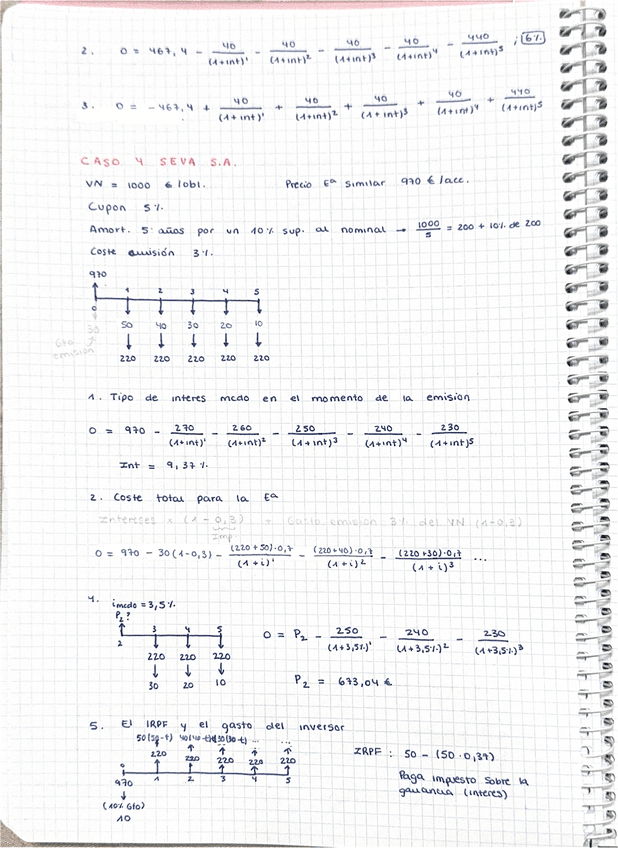 2. 0 = 467,4 - 40/(1+int)¹ - 40/(1+int)² - 40/(1+int)³ - 40/(1+int)⁴ - 440/(1+int)⁵ ; 6%
3. 0 = -467,4 + 40/(1+int)¹ + 40/(1+int)² + 40/(1+int)³ + 40/(1+int)⁴ + 440/(1+int)⁵
CASO 4 SEVA S.A.
VN = 1000 €/obl. Precio Eª similar 970 €/acc.
Cupon 5%
Amort. 5 años por un 10% sup. al nominal → 1000/5 = 200 + 10% de 200
Coste emisión 3%
970
1 2 3 4 5
0
30 50 40 30 20 10
Gto emisión
220 220 220 220 220
1. Tipo de interes mcdo en el momento de la emision
0 = 970 - 270/(1+int)¹ - 260/(1+int)² - 250/(1+int)³ - 240/(1+int)⁴ - 230/(1+int)⁵
Int = 9,37%
2. Coste total para la Eª
Intereses x (1-0,3) = Gasto emisión 3% del VN (1-0,3)
Imp.
0 = 970 - 30(1-0,3) - (220+50)·0,7/(1+i)¹ - (220+40)·0,7/(1+i)² - (220+30)·0,7/(1+i)³ ...
4. imcdo = 3,5%
P₂?
3 4 5
2
220 220 220
30 20 10
0 = P₂ - 250/(1+3,5%)¹ - 240/(1+3,5%)² - 230/(1+3,5%)³
P₂ = 673,04 €
5. El IRPF y el gasto del inversor
50(50-t) 40(40-t) 30(30-t) ... ...
220 220 220 220 220
0 1 2 3 4 5
970
(10% Gto)
10
IRPF : 50 - (50·0,39)
Paga impuesto sobre la
ganancia (interes)